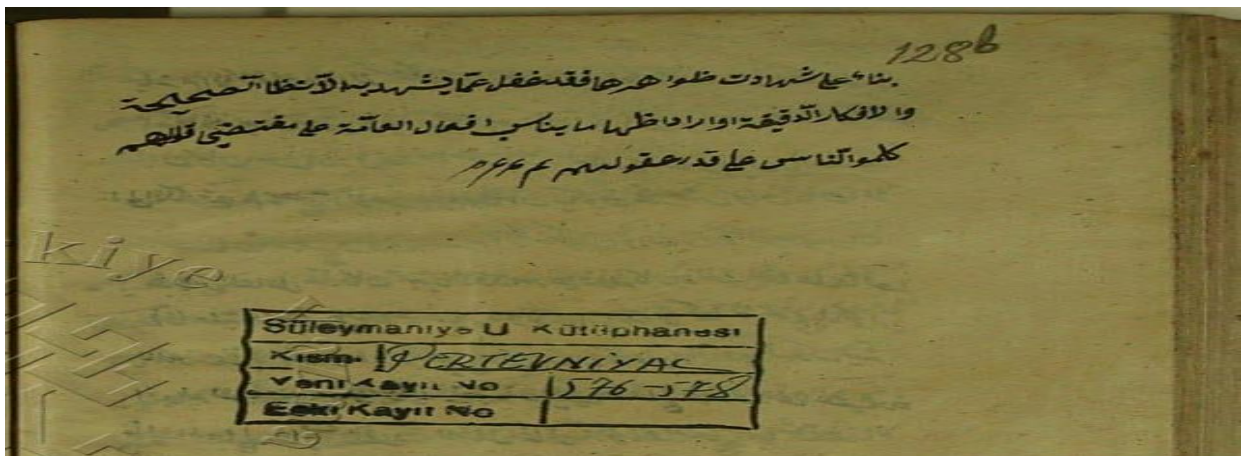 128b
بناء على شهادت ظواهرها فقد غفل عما يشهد به الآنظار الصحيحة
والافكار الدقيقة او اراد اظهار ما يناسب افعال العامة على مقتضى قولهم
كلموا الناس على قدر عقولهم
kiye
Süleymaniye U Kütüphanesi
Kısmı PERTEVNİYAL
Yeni Kayıt No 576-578
Eski Kayıt No